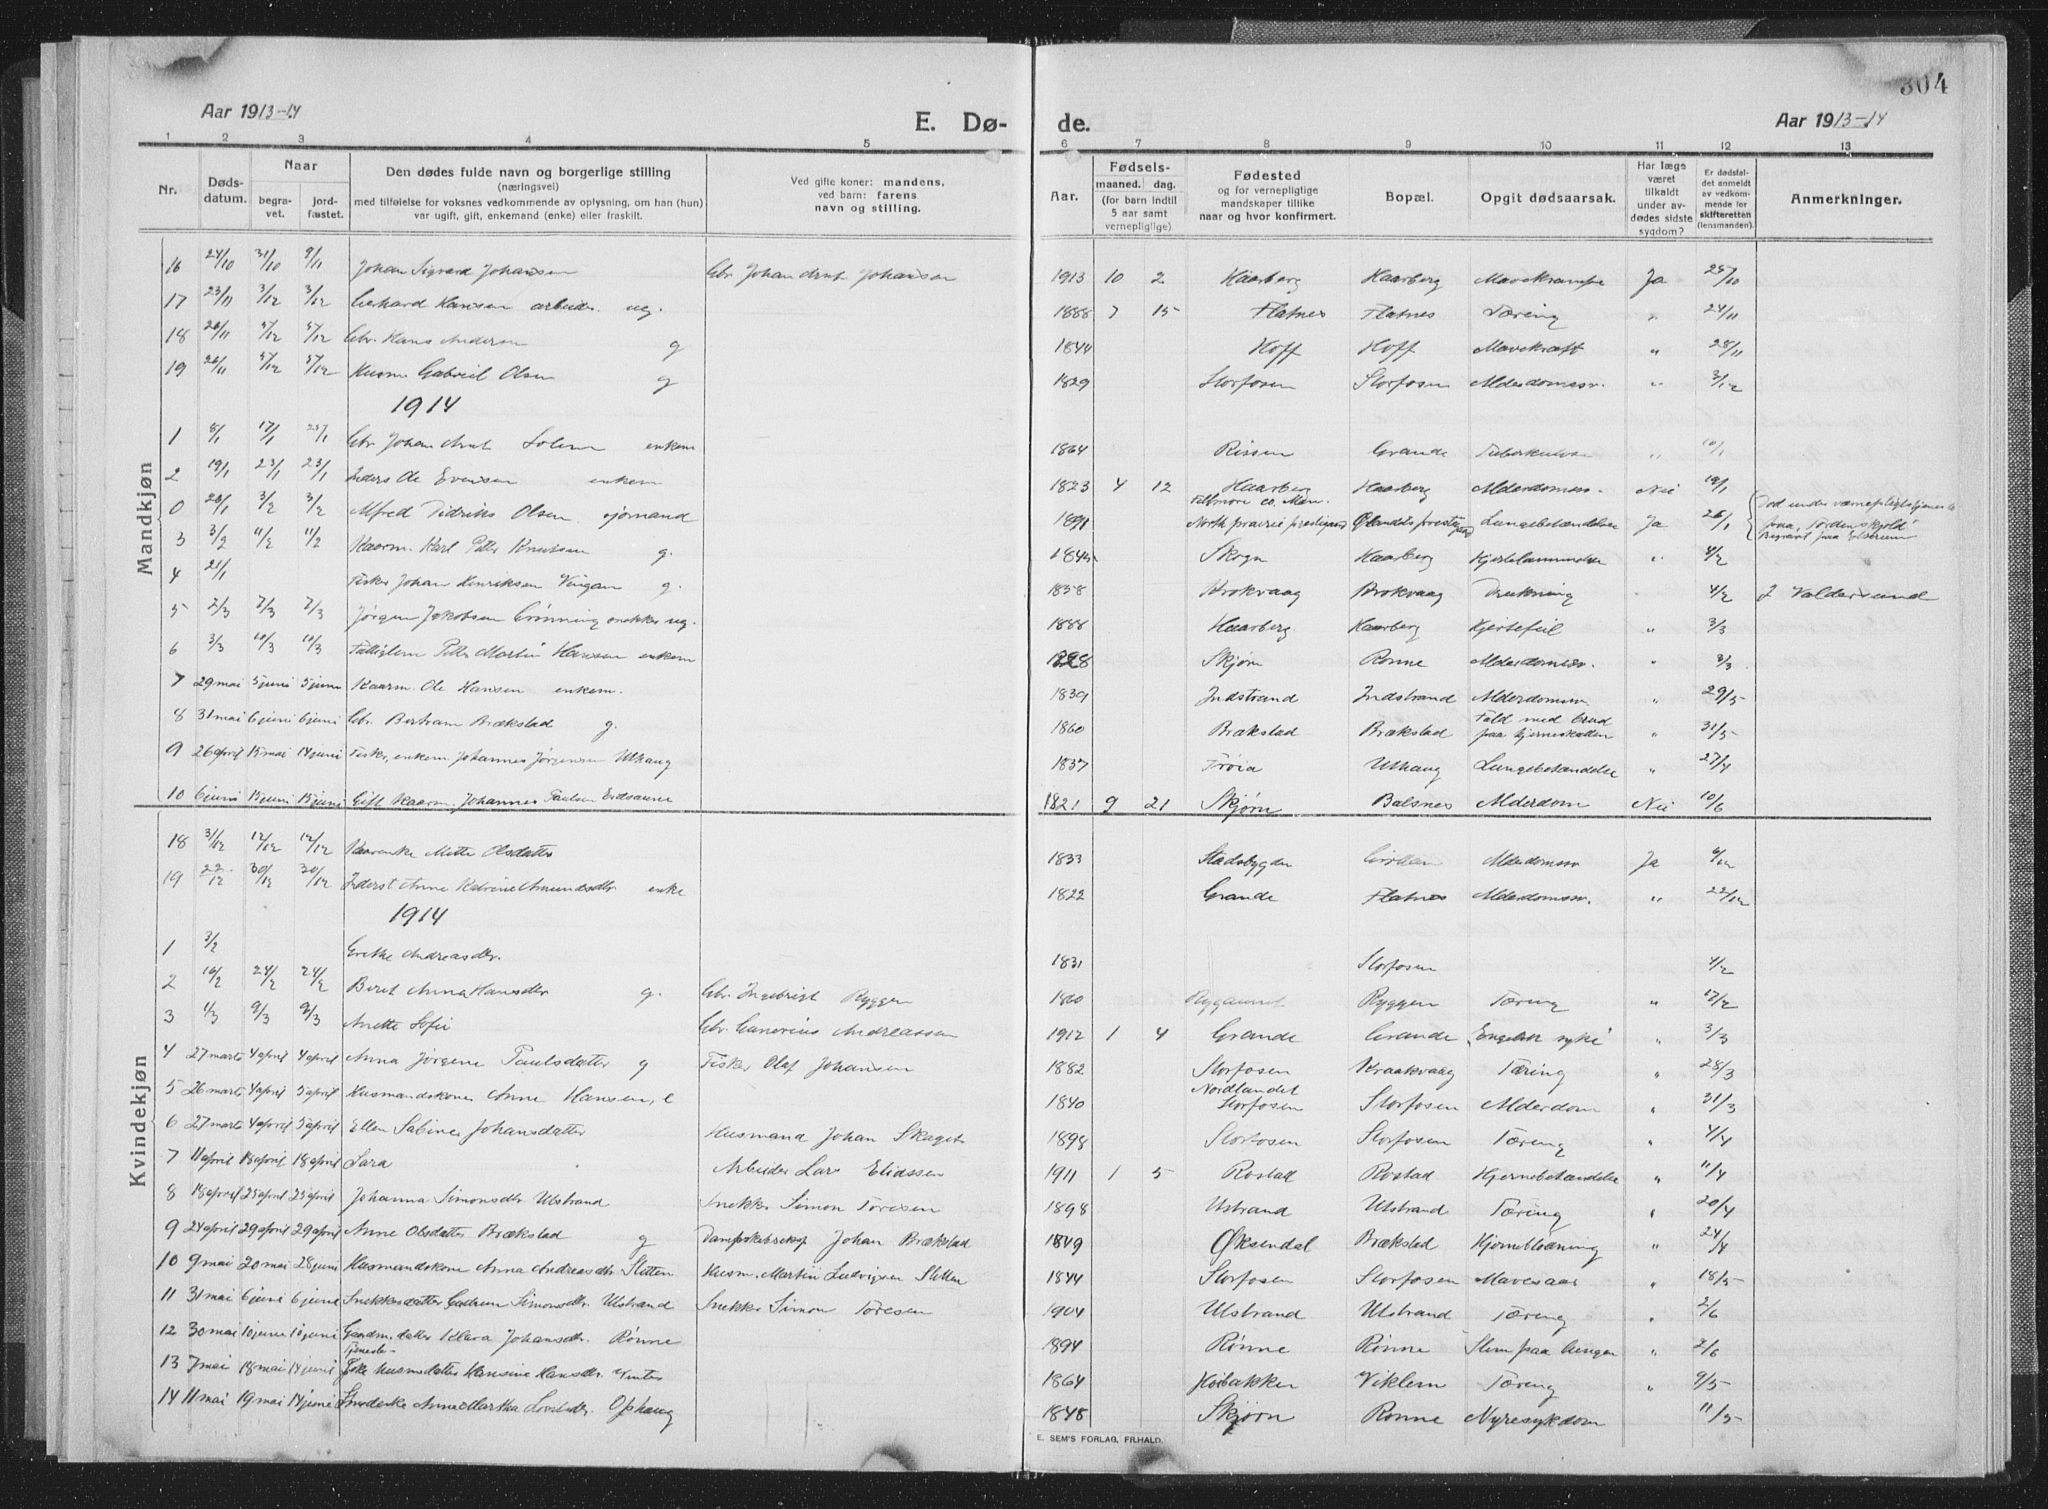 304
Aar 1913-14
E. Dø- de.
Aar 1913-14
1 2 3 4 5 6 7 8 9 10 11 12 13
Nr.
Døds-datum.
Naar
begra-vet.
jord-fæstet.
Den dødes fulde navn og borgerlige stilling
(næringsvei)
med tilføielse for voksnes vedkommende av oplysning, om han (hun)
var ugift, gift, enkemand (enke) eller fraskilt.
Ved gifte koner: mandens,
ved barn: farens
navn og stilling.
Aar.
Fødsels-
maaned. dag.
(for barn indtil
5 aar samt
vernepligtige)
Fødested
og for vernepligtige
mandskaper tillike
naar og hvor konfirmert.
Bopæl.
Opgit dødsaarsak.
Har læge
været
tilkaldt
under av-
dødes sidste
sygdom?
Er dødsfal-
det anmeldt
av vedkom-
mende for
skifteretten
(lensmanden).
Anmerkninger.
Mandkjøn
16 24/10 31/10 9/11 Johan Sigvard Johansen Gbr. Johan Arnt Johansen 1913 10 2 Haarberg Haarberg Mavekrampe Ja 25/10
17 23/11 3/12 3/12 Gerhard Hansen arbeider ug. 1888 7 15 Flatnes Flatnes Tæring " 24/11
18 26/11 5/12 5/12 Gbr. Hans Andersen g 1844 Hoff Hoff Mavekræft " 28/11
19 26/11 5/12 5/12 Husm. Gabriel Olsen g 1829 Storfosen Storfosen Alderdomssv. " 3/12
1914
1 8/1 17/1 25/1 Gbr. Johan Arnt Solem enkem 1864 Rissen Grande Tuberkulose " 10/1
2 19/1 23/1 23/1 Inderst Ole Evensen enkem 1823 4 12 Haarberg Haarberg Alderdomssv. Nei 19/1
0 20/1 3/2 3/2 Alfred Didriks Olsen sjømand 1891 Fillmore co. Min. North prairie prestegj. Ørlandets prestegaard Lungebetændelse Ja 26/1 Død under værnepligtstjeneste paa "Tordenskjold" Begravet paa
3 3/2 11/2 11/2 Kaarm. Karl Petter Knutsen g. 1845 Skogn Haarberg Hjertelammelse " 4/2
4 25/1 Fisker Johan Henriksen Vingan g. 1858 Brokvaag Brokvaag Drukning 4/2 I Valdersund
5 2/3 7/3 7/3 Jørgen Jakobsen Grønning snekker ug. 1888 Haarberg Haarberg Hjertefeil " 3/3
6 3/3 10/3 10/3 Fattiglem Petter Martin Hansen enkem 1828 Skjørn Rønne Alderdomssv. " 3/3
7 29 mai 5 juni 5 juni Kaarm. Ole Hansen enkem. 1839 Indstrand Indstrand Alderdomssv " 29/5
8 31 mai 6 juni 6 juni Gbr. Bertram Brækstad g. 1860 Brækstad Brækstad Fald med brud paa hjerneskallen " 31/5
9 26 april 15 mai 14 juni Fisker, enkem. Johannes Jørgensen Uthaug 1837 Frøia Uthaug Lungebetændelse " 27/4
10 6 juni 15 juni 15 juni Gift kaarm. Johannes Paulsen Eidsaune 1821 9 21 Skjørn Balsnes Alderdom Nei 10/6
Kvindekjøn
18 3/12 12/12 12/12 Kaarenke Mette Olsdatter 1833 Stadsbygden Alderdomssv Ja 6/12
19 22/12 30/12 30/12 Inderst Anne Katrine Amundsdtr. enke 1822 Grande Flatnes Alderdomssv. " 22/12
1914
1 3/2 Grethe Andreasdtr. 1831 Storfosen 4/2
2 16/2 24/2 24/2 Beret Anna Hansdtr g. Gbr. Ingebrigt Ryggen 1860 Ryggen Tæring " 17/2
3 4/3 9/3 9/3 Anette Sofie Gbr. Andreassen 1912 1 4 Grande Grande Engelsk syke " 3/3
4 27 marts 4 april 4 april Anna Jørgine Paulsdatter g Fisker Olaf Johansen 1882 Storfosen Kraakvaag Tæring " 28/3
5 26 marts 4 april 5 april Husmandskone Anne Hansen, e 1840 Nordlandet Storfosen Storfosen Alderdom " 31/3
6 27 marts 4 april 5 april Ellen Sabine Johansdatter Husmand Johan Skaget 1898 Storfosen Storfosen Tæring " 4/4
7 11 april 18 april 18 april Sara Arbeider Lars Eliassen 1911 1 5 Rostad Rostad Hjernebetændelse " 11/4
8 18 april 25 april 25 april Johanna Simonsdtr Ulstrand Snekker Simon Toresen 1898 Ulstrand Ulstrand Tæring " 20/4
9 24 april 29 april 29 april Anne Olsdatter Brækstad g Dampskibseksp Johan Brækstad 1849 Øksendal Brækstad Hjerneblødning " 24/4
10 9 mai 20 mai 28 juni Husmandskone Anna Andreasdtr Sletten Husm. Martin Ludvigsen Sletten 1844 Storfosen Storfosen Mavesaar " 18/5
11 31 mai 6 juni 6 juni Snekkerdatter Simonsdtr. Ulstrand Snekker Simon Toresen 1904 Ulstrand Ulstrand Tæring " 2/6
12 30 mai 10 juni 10 juni Gaardm.datter Klara Johansdtr. Rønne 1894 Rønne Rønne Slim paa lungen " 2/6
13 7 mai 18 mai 14 juni Tjeneste- pike husm.datter Hansine Hansdtr. 1864 Høibakken Viklem Tæring " 9/5
14 11 mai 19 mai 14 juni Anne Martha Ophaug 1848 Skjørn Rønne Nyresykdom 11/5
E. SEM'S FORLAG, FR.HALD.